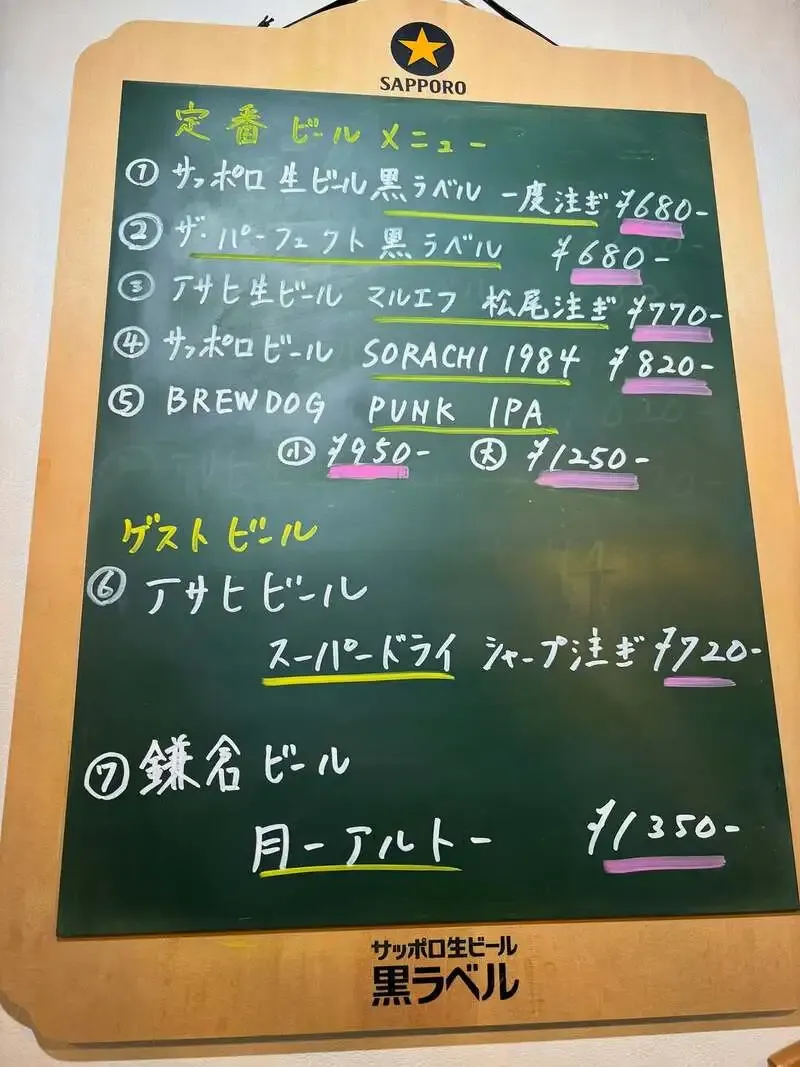 SAPPORO
定番ビールメニュー
① サッポロ生ビール黒ラベル 一度注ぎ ¥680-
② ザ・パーフェクト黒ラベル ¥680-
③ アサヒ生ビール マルエフ 松尾注ぎ ¥770-
④ サッポロビール SORACHI 1984 ¥820-
⑤ BREWDOG PUNK IPA
小 ¥950- 大 ¥1250-
ゲストビール
⑥ アサヒビール
スーパードライ シャープ注ぎ ¥720-
⑦ 鎌倉ビール
月-アルト- ¥1350-
サッポロ生ビール
黒ラベル